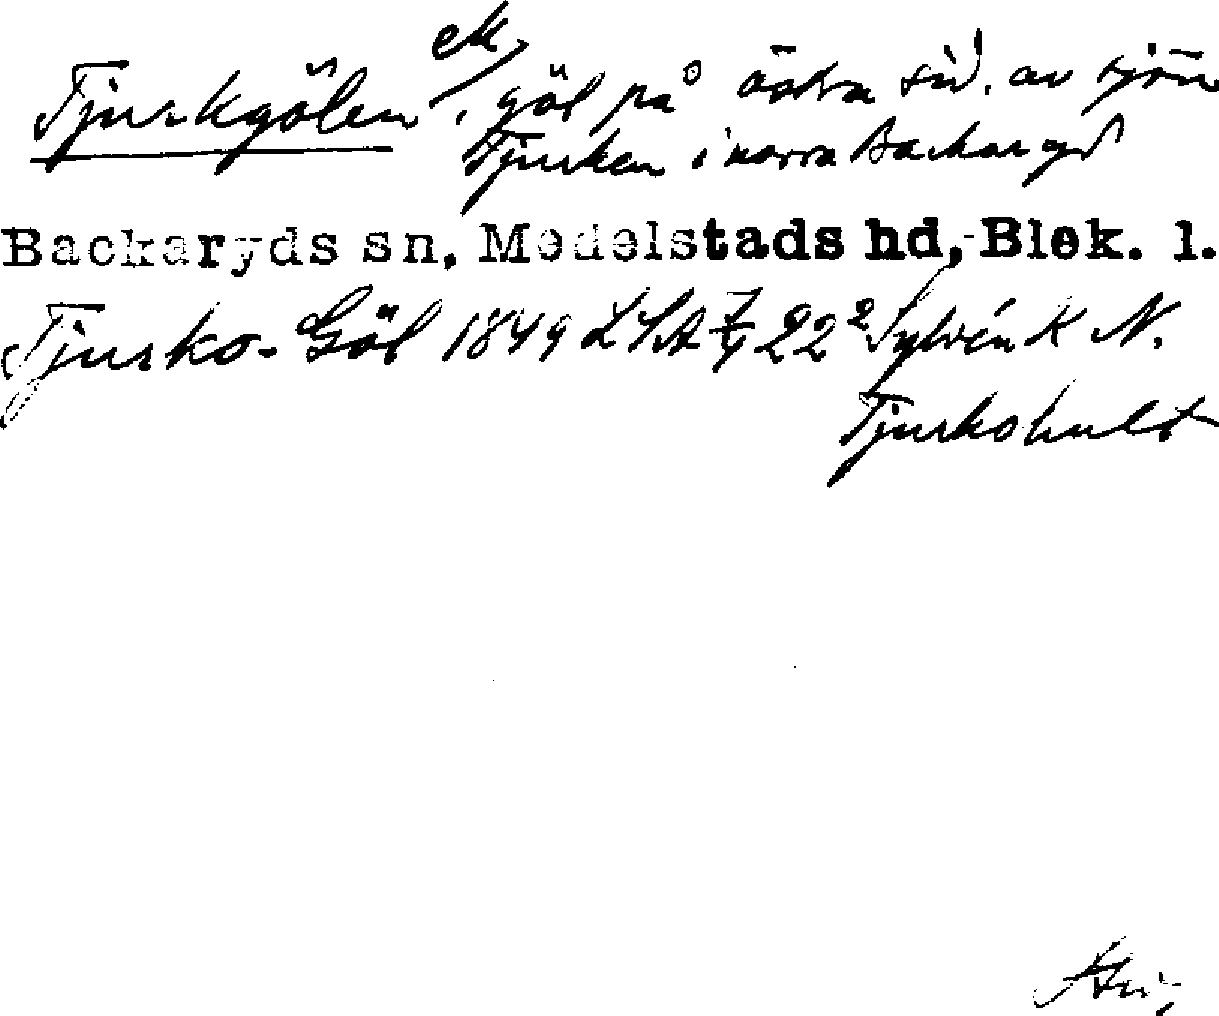 Tjurkgölen ek, göl på östra sid. av sjön
Tjurken i norra Backaryd
Backaryds sn, Medelstads hd, Blek. l.
Tjurko-Göl 1849 LSA 22² Sylvén K N.
Tjurkohult